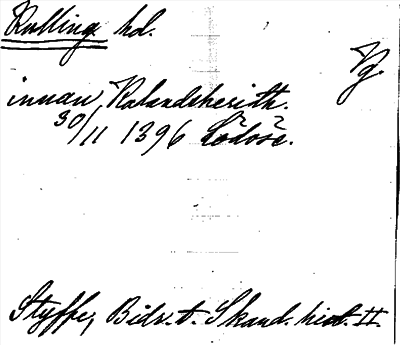 Kulling hd.
Vg.
innan Kalandsherith.
30/11 1396 Lødose.
Styffe, Bidr. t. Skand. hist. II.